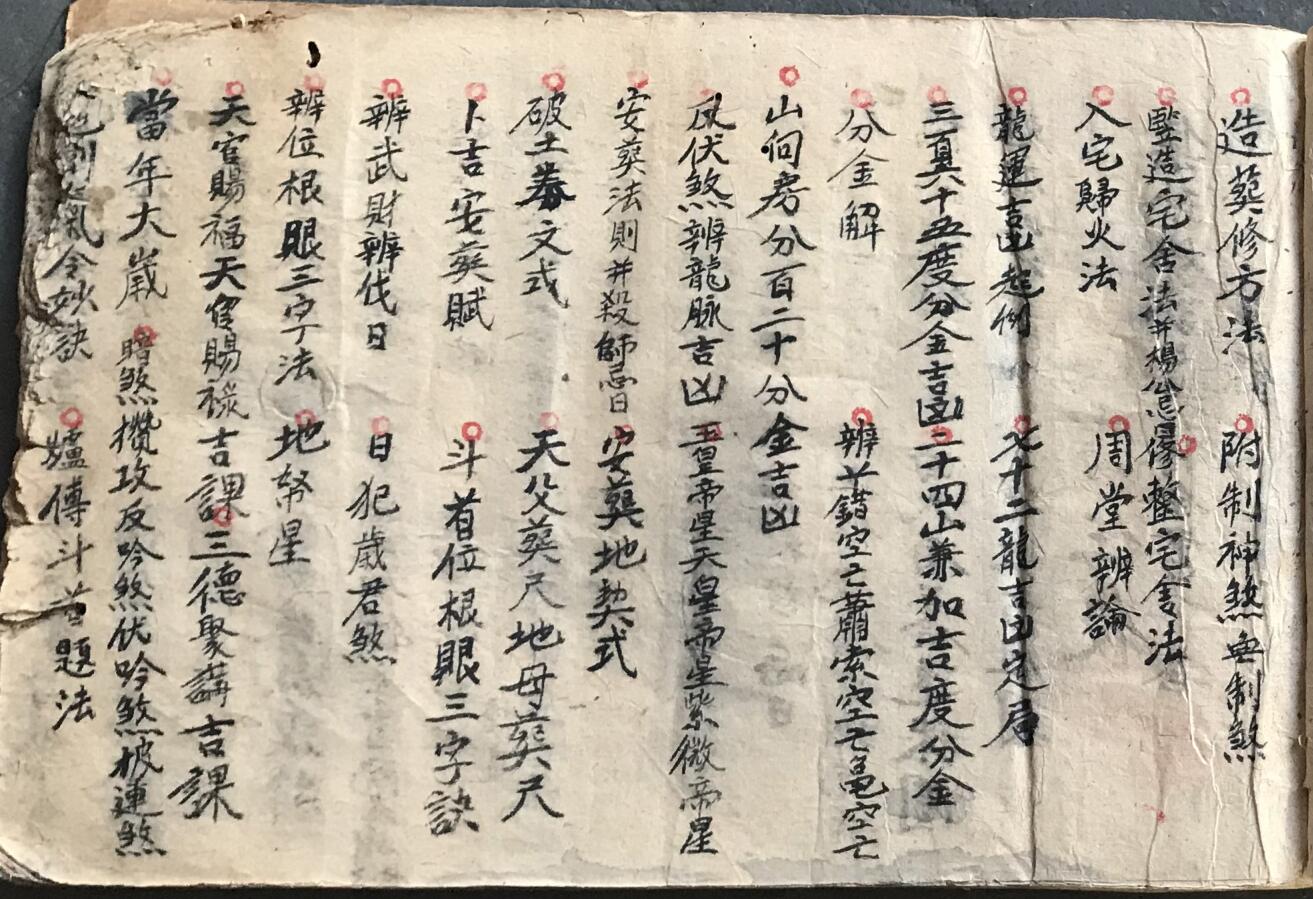 造葬修方法 附制神煞無制煞
豎造宅舍法并楊公忌日 修整宅舍法
入宅歸火法 周堂辨論
龍運吉凶起例 七十二龍吉凶定局
三百六十五度分金吉凶 二十四山兼加吉度分金
分金解 辨差錯空亡蕭索空亡龟空亡
山向房分百二十分金吉凶
伏煞辨龍脉吉凶 玉皇帝星天皇帝星紫微帝星
安葬法則并殺師忌日 安葬地契式
破土券文式 天父葬尺地母葬尺
卜吉安葬賦 斗首位根眼三字訣
辨武財辨伐日 日犯歲君煞
辨位根眼三字法 地弩星
天官賜福天官賜祿吉課 三德聚講吉課
當年大歲 暗煞攢攻反吟煞伏吟煞披連煞
氣令妙訣 爐傳斗首題法